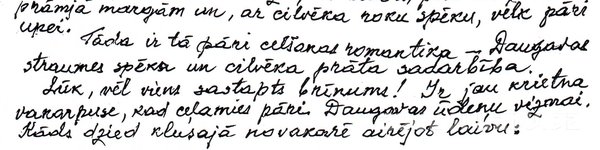 prāmja margām un, ar cilvēka roku spēku, velk pāri
upei.
Tāda ir tā pāri celšanas romantika – Daugavas
straumes spēka un cilvēka prāta sadarbība.
Lūk, vēl viens sastapts brīnums! Ir jau krietna
vakarpuse, kad ceļamies pāri Daugavas ūdeņu vizmai.
Kāds dzied klusajā novakarē airējot laivu: